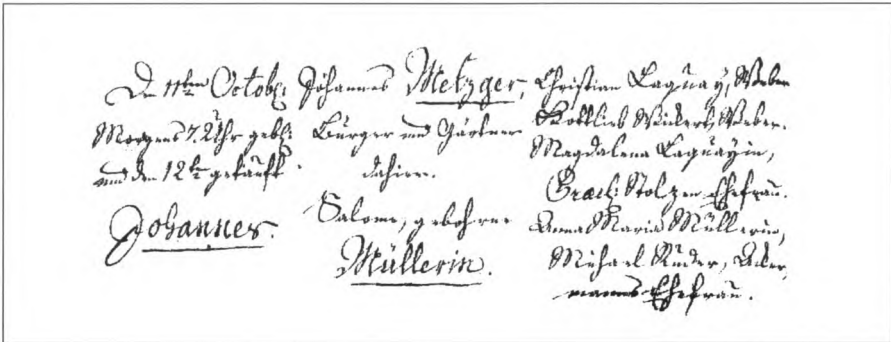 De 11ten Octobr:
Morgens 7. Uhr geb:
und den 12te getäuft
Johannes.
Johannes Metzger,
Bürger und Gärtner
dahier.
Salome, gebohrne
Müllerin.
Christian Laquay, Weber
Gottlieb Weickert, Weber.
Magdalena Laquayin,
Stolzen Ehefrau.
Anna Maria Müllerin,
Michael Ruder, Acker,
manns Ehefrau.